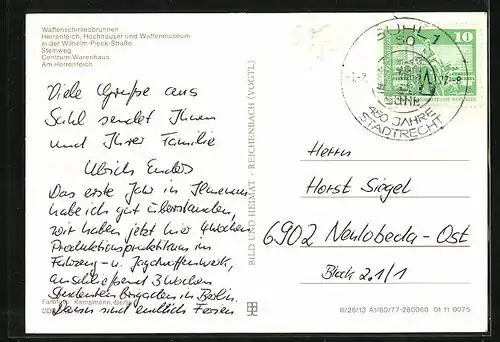 Waffenschmiedbrunnen
Herrenteich, Hochhäuser und Waffenmuseum
in der Wilhelm-Pieck-Straße
Steinweg
Centrum-Warenhaus
Am Herrenteich
Viele Grüße aus
Suhl sendet Ihnen
und Ihrer Familie
Ulrich Enders
Das erste Jahr in Ilmenau
habe ich gut überstanden,
wir haben jetzt hier 4 Wochen
Produktionspraktikum im
Fahrzeug- u. Jagdwaffenwerk,
anschließend 3 Wochen
Studentenbrigaden in Berlin.
Dann sind endlich Ferien
Kampmann, Berlin
BILD UND HEIMAT · REICHENBACH (VOGTL)
SUHL 1
10
450 JAHRE
STADTRECHT
Herrn
Horst Siegel
6902 Neulobeda-Ost
Block 2.1/1
III/26/13 A1/60/77-280060 01 11 0075